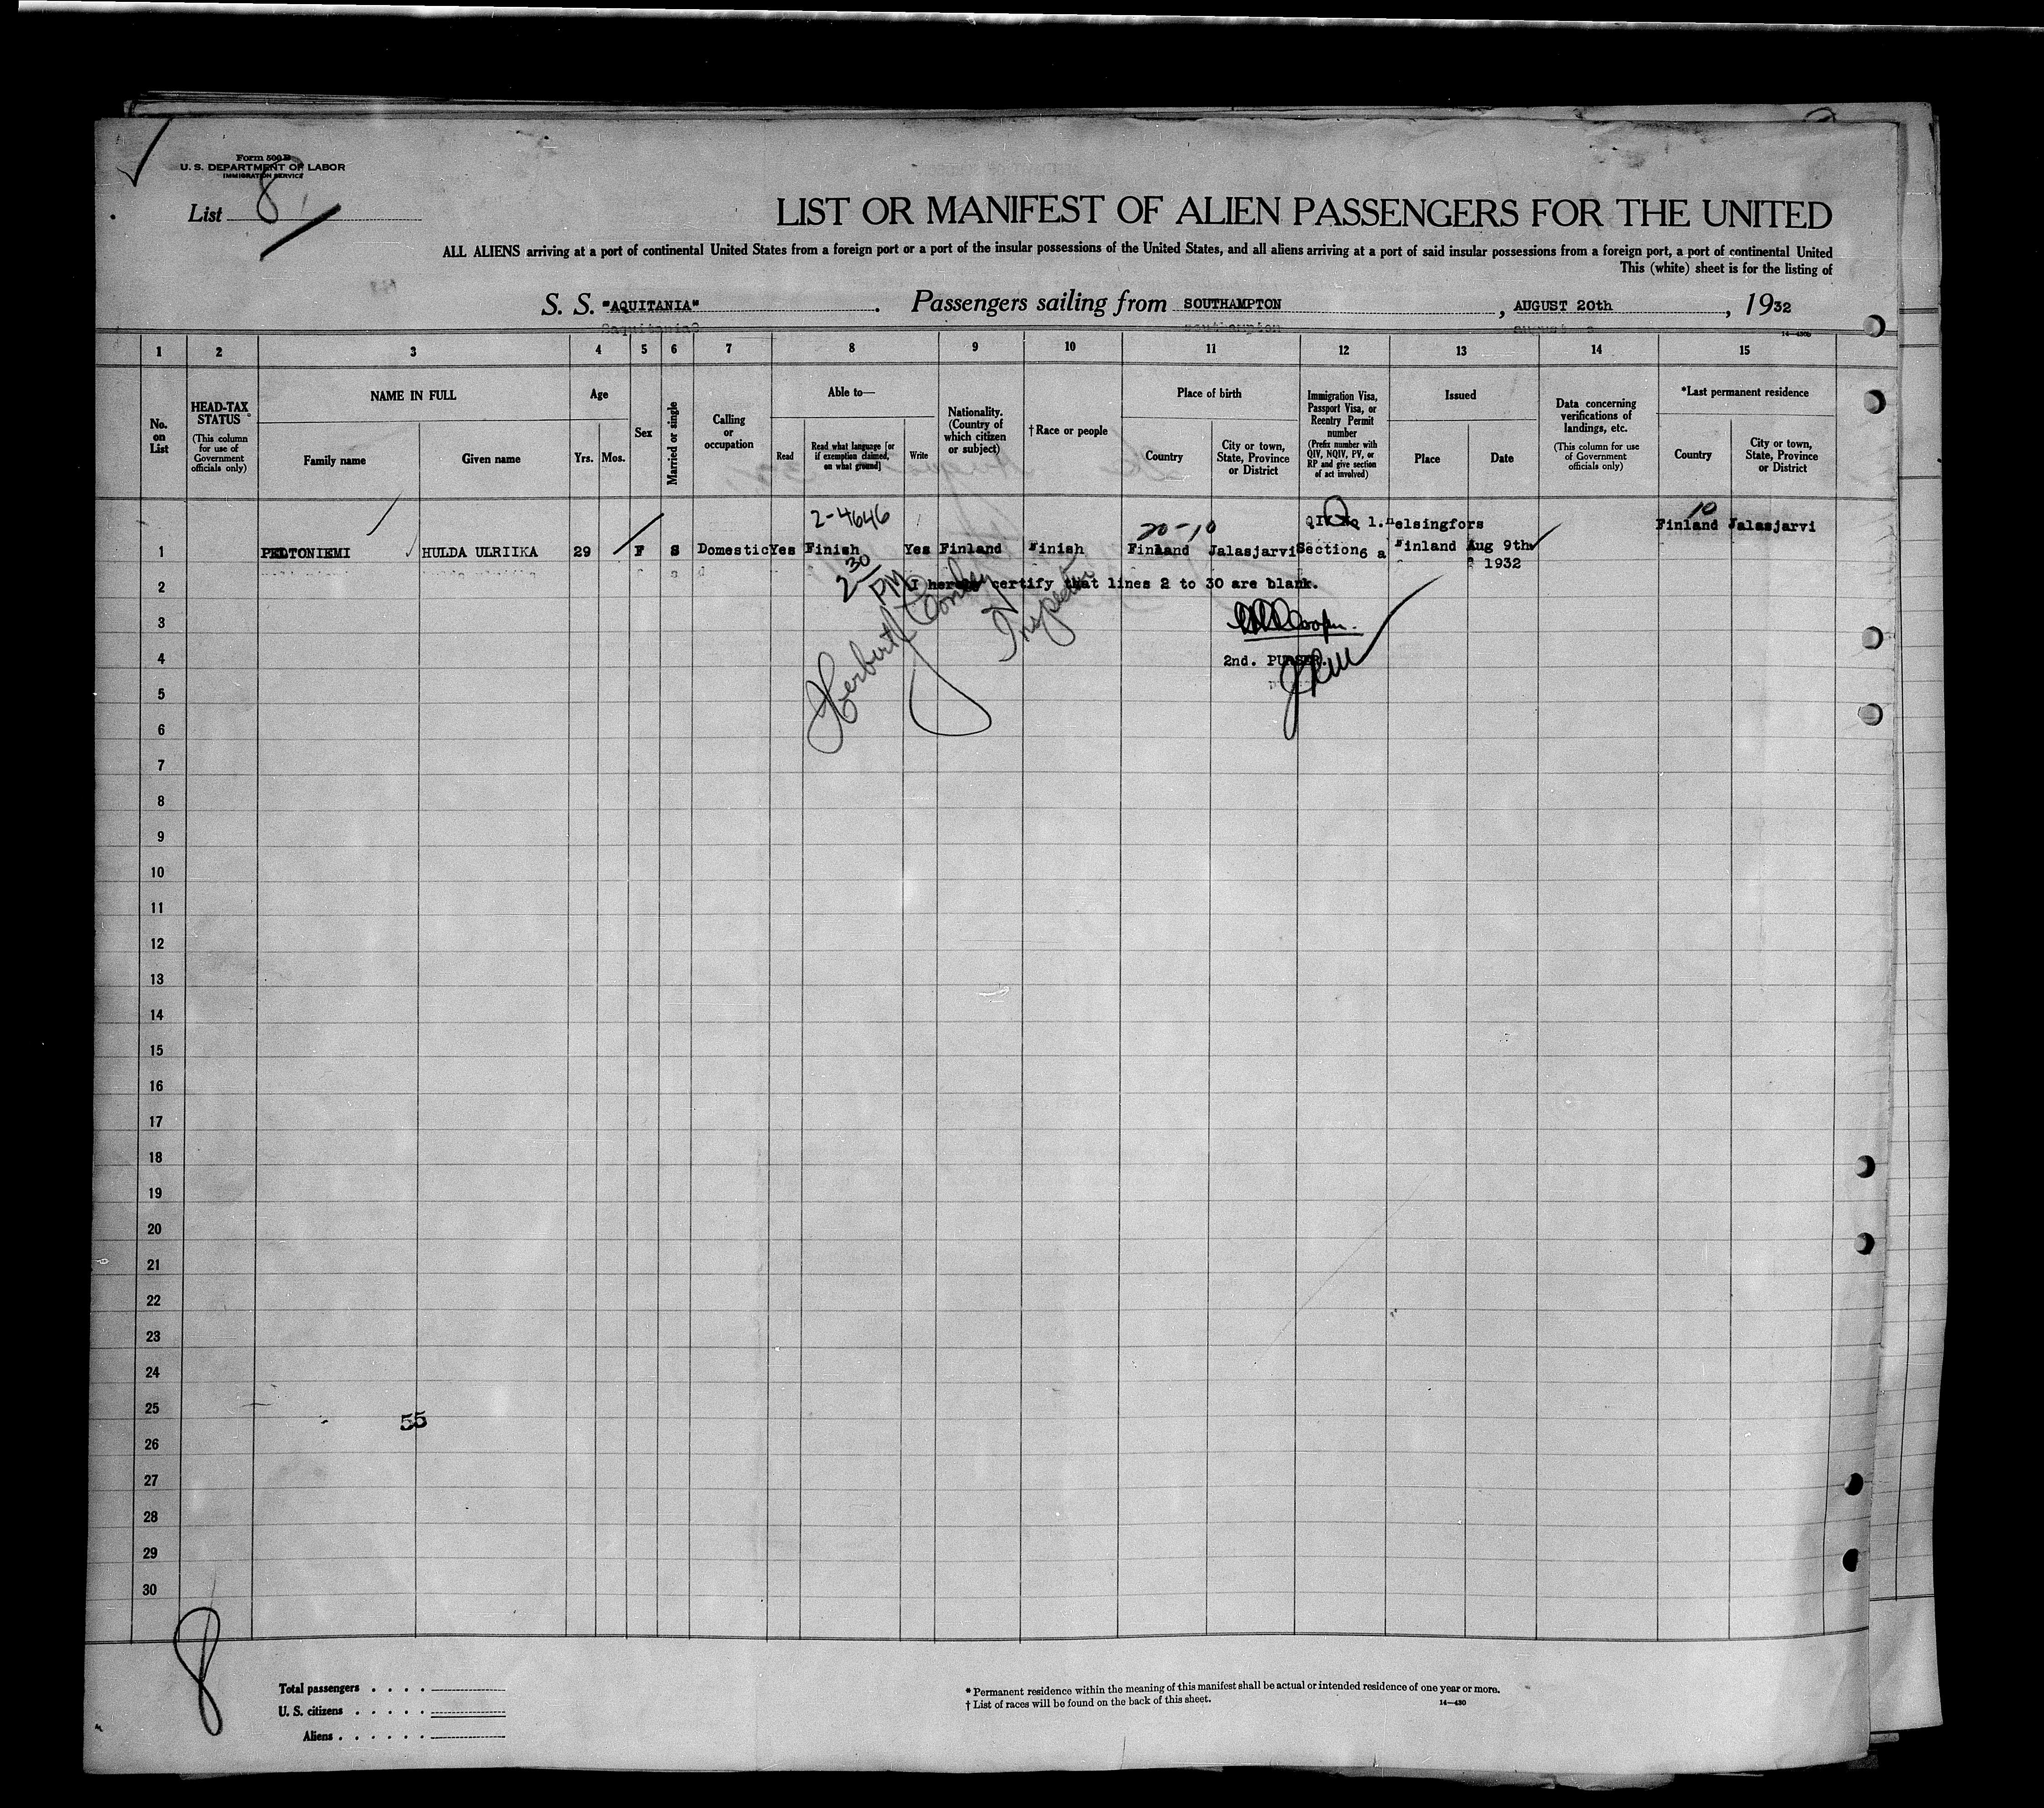 Form 500 B
U. S. DEPARTMENT OF LABOR
IMMIGRATION SERVICE
List 8
LIST OR MANIFEST OF ALIEN PASSENGERS FOR THE UNITED
ALL ALIENS arriving at a port of continental United States from a foreign port or a port of the insular possessions of the United States, and all aliens arriving at a port of said insular possessions from a foreign port, a port of continental United
This (white) sheet is for the listing of
S. S. "AQUITANIA". Passengers sailing from SOUTHAMPTON, AUGUST 20th, 1932
14—430b
1 2 3 4 5 6 7 8 9 10 11 12 13 14 15
No. on List
HEAD-TAX STATUS (This column for use of Government officials only)
NAME IN FULL
Family name Given name
Age
Yrs. Mos.
Sex
Married or single
Calling or occupation
Able to—
Read Read what language [or if exemption claimed, on what ground] Write
Nationality. (Country of which citizen or subject)
†Race or people
Place of birth
Country City or town, State, Province or District
Immigration Visa, Passport Visa, or Reentry Permit number (Prefix number with QIV, NQIV, PV, or RP and give section of act involved)
Issued
Place Date
Data concerning verifications of landings, etc. (This column for use of Government officials only)
*Last permanent residence
Country City or town, State, Province or District
2-4646 20-10 1. elsingfors 10 Finland Jalasjarvi
1 PELTONIEMI HULDA ULRIIKA 29 F S Domestic Yes Finish Yes Finland Finish Finland Jalasjarvi Section 6 a Finland Aug 9th
1932
2 30 PM
2 I hereby certify that lines 2 to 30 are blank.
Herbert Inspector
3
4 2nd. PURSER.
5
6
7
8
9
10
11
12
13
14
15
16
17
18
19
20
21
22
23
24
25
55
26
27
28
29
30
8
Total passengers . . . .
U. S. citizens . . . . .
Aliens . . . . . .
* Permanent residence within the meaning of this manifest shall be actual or intended residence of one year or more.
† List of races will be found on the back of this sheet.
14—430